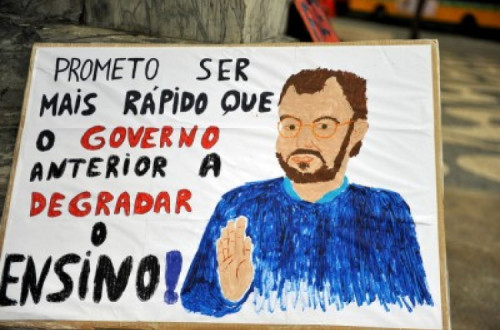 PROMETO SER
MAIS RÁPIDO QUE
O GOVERNO
ANTERIOR A
DEGRADAR
O
ENSINO!